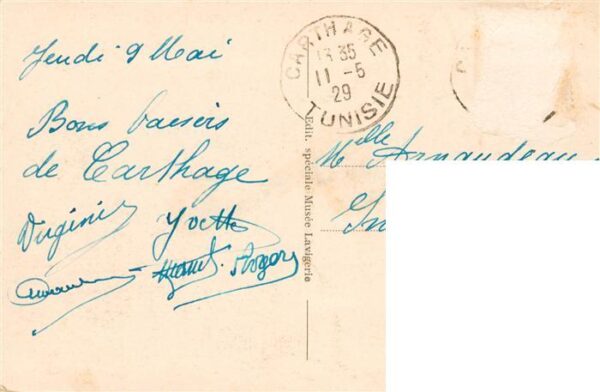 Jeudi 9 Mai
Bons baisers
de Carthage
Virginie Yvette
Roger
CARTHAGE
13 35
11 - 5
29
TUNISIE
Edit. spéciale Musée Lavigerie
Melle Arnaudeau